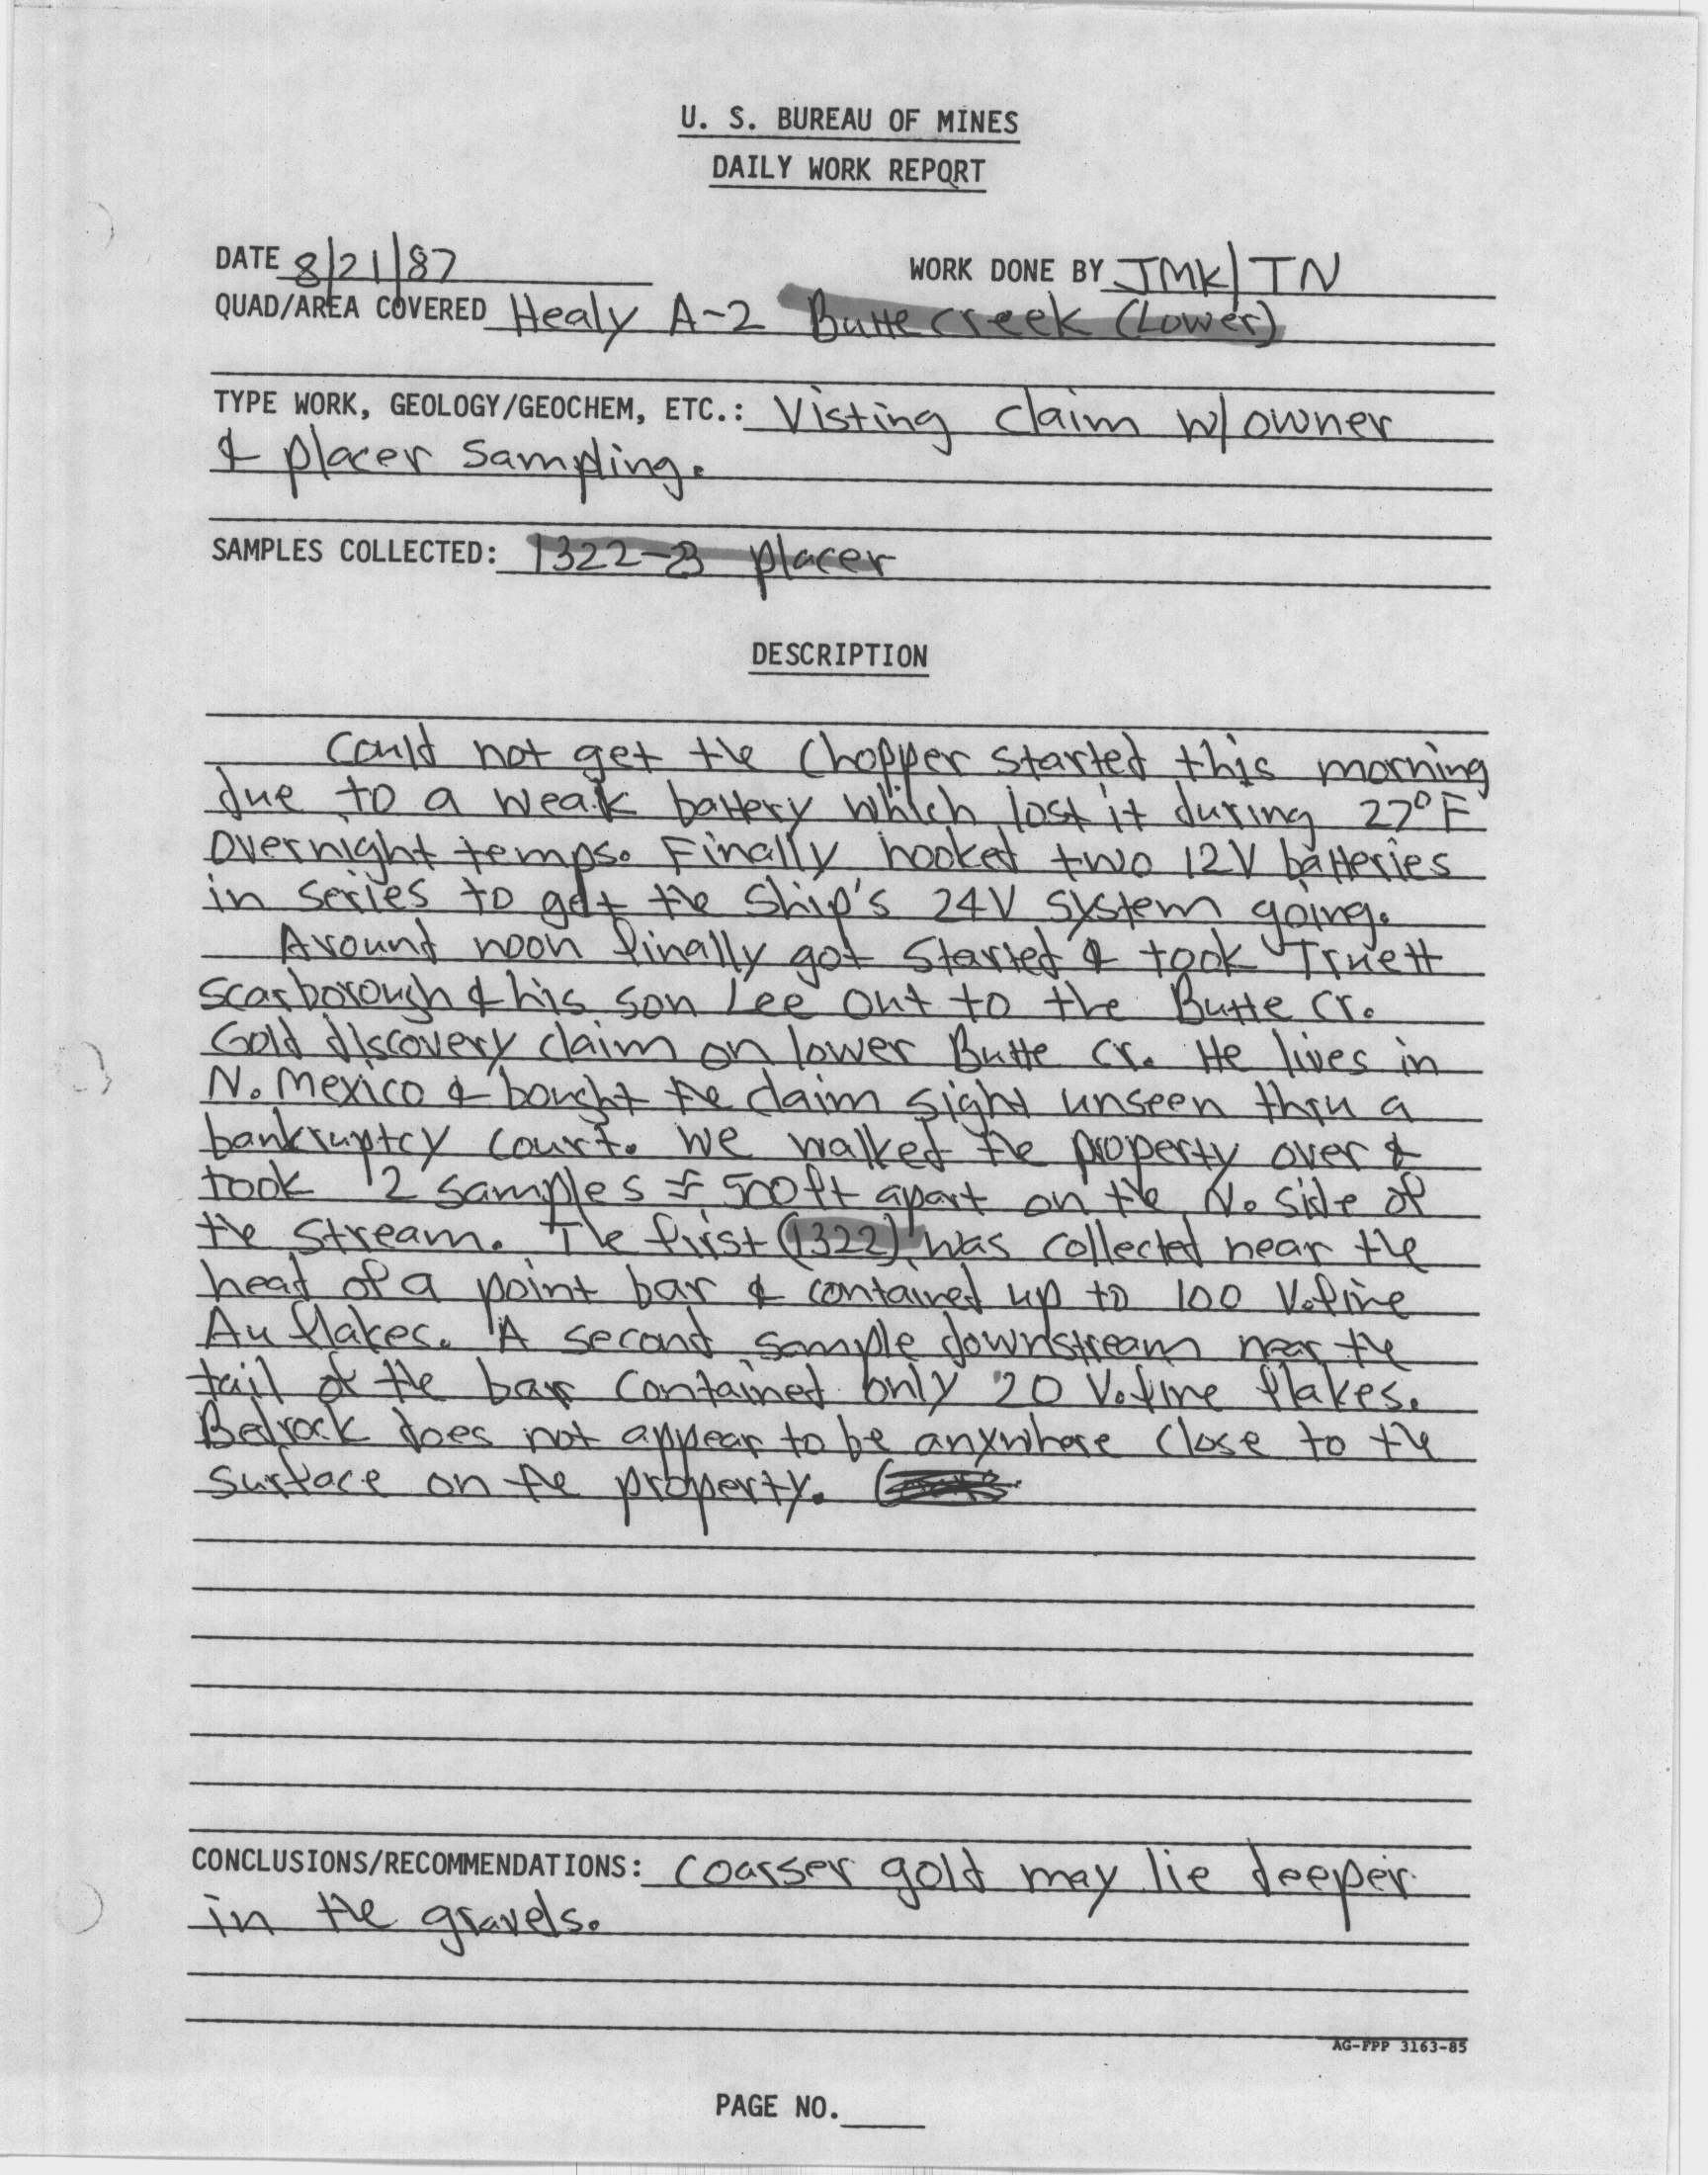 U. S. BUREAU OF MINES
DAILY WORK REPORT
DATE 8/21/87 WORK DONE BY JMK/TN
QUAD/AREA COVERED Healy A-2 Butte creek (Lower)
TYPE WORK, GEOLOGY/GEOCHEM, ETC.: Visting claim w/owner
& placer sampling.
SAMPLES COLLECTED: 1322-23 placer
DESCRIPTION
Could not get the chopper started this morning
due to a weak battery which lost it during 27°F
overnight temps. Finally hooked two 12V batteries
in series to get the ship's 24V system going.
Around noon finally got started & took Truett
Scarborough & his son Lee out to the Butte Cr.
Gold discovery claim on lower Butte Cr. He lives in
N. Mexico & bought the claim sight unseen thru a
bankruptcy court. We walked the property over &
took 2 samples ≈ 500ft apart on the N. side of
the stream. The first (1322) was collected near the
head of a point bar & contained up to 100 V. fine
Au flakes. A second sample downstream near the
tail of the bar contained only 20 V. fine flakes.
Bedrock does not appear to be anywhere close to the
surface on the property.
CONCLUSIONS/RECOMMENDATIONS: coarser gold may lie deeper
in the gravels.
AG-FPP 3163-85
PAGE NO.